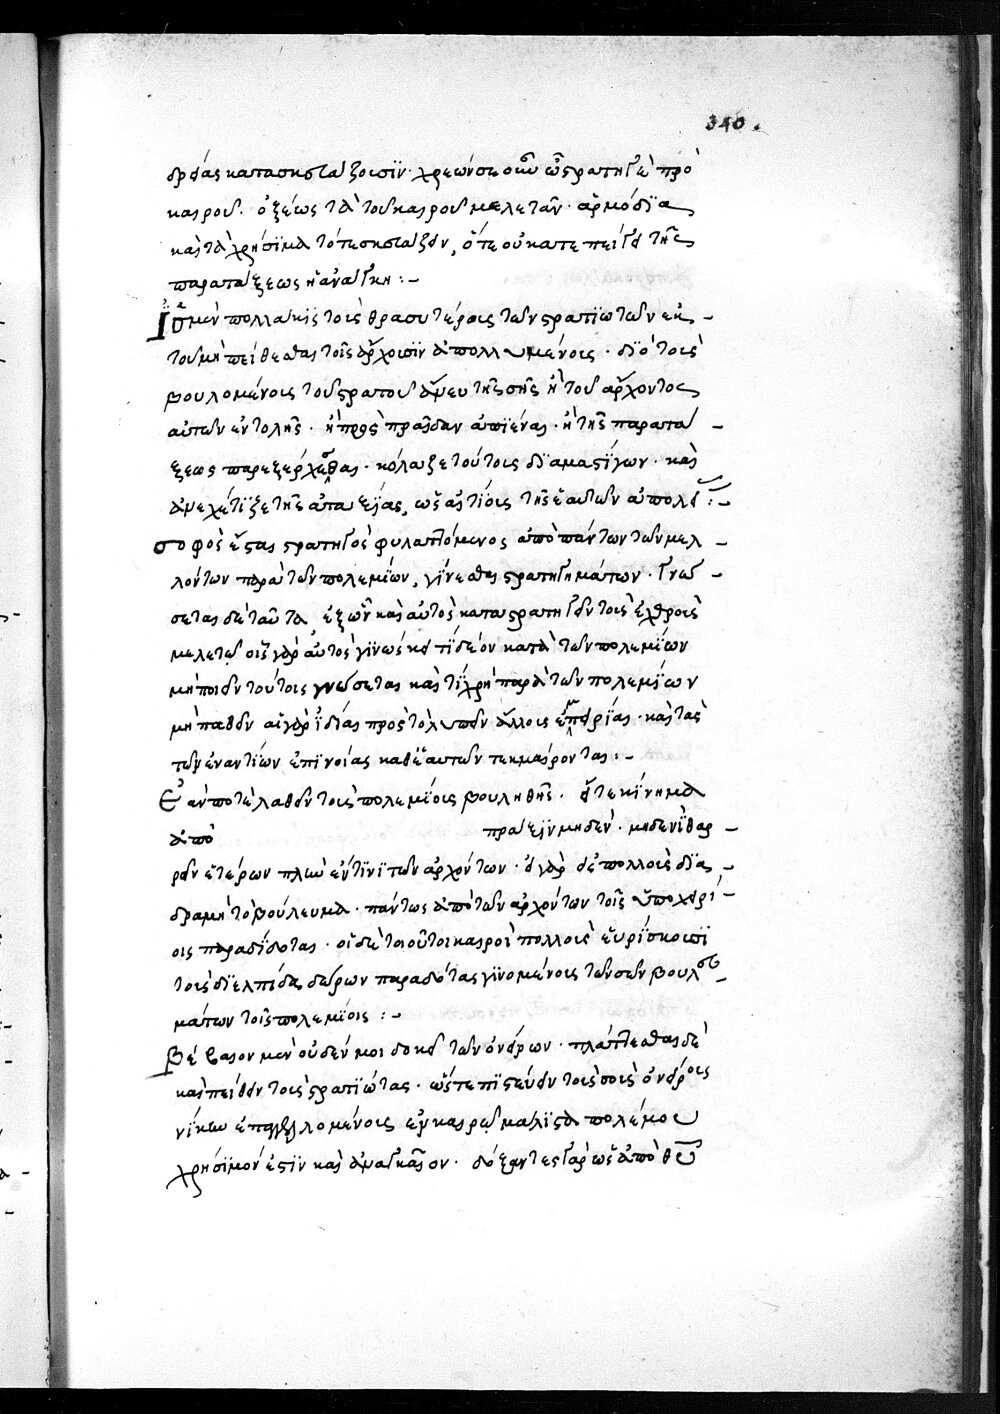 340.
δρείας κατασκευάζουσιν· χρεών σε οὖν ὦ στρατηγὲ πρὸ
καιροῦ. ὀξέως τὰ τοῦ καιροῦ μελετᾶν. ἁρμόδια
καὶ τὰ χρήσιμα τότε σκευάζειν, ὅτε οὐ κατεπείγει τῆς
παρατάξεως ἡ ἀνάγκη:-
Ἴσμεν πολλάκις τοῖς θρασυτέροις τῶν στρατιωτῶν ἐκ
τοῦ μὴ πείθεσθαι τοῖς ἄρχουσιν ἀπολλυμένοις. διὸ τοῖς
βουλομένοις τοῦ στρατοῦ ἄνευ τῆς σῆς ἢ τοῦ ἄρχοντος
αὐτῶν ἐντολῆς. ἢ πρὸς πραῖδαν ἀπιέναι. ἢ τῆς παρατά
ξεως παρεξέρχεσθαι. κόλαζε τούτοις διὰ μαστίγων. καὶ
τῆς ὡς αἰτίοις τῆς ἑαυτῶν :-
σοφὸς ἔσται στρατηγὸς φυλαττόμενος ἀπὸ πάντων τῶν μελ
λόντων παρὰ τῶν πολεμίων, γίνεσθαι στρατηγημάτων. γνώ
σεται δὲ ταῦτα ἐξ ὧν καὶ αὐτὸς καταστρατηγεῖν τοῖς ἐχθροῖς
μελετῶ οἷς γὰρ αὐτὸς γινώσκει τί δέον κατὰ τῶν πολεμίων
μὴ ποιεῖν τούτοις γνώσεται καὶ τί χρὴ παρὰ τῶν πολεμίων
μὴ παθεῖν αἱ γὰρ ἰδίας πρὸς τὸ λυπεῖν ἄλλοις ἐμπειρίας. καὶ τὰς
τῶν ἐναντίων ἐπινοίας καθ' ἑαυτῶν τεκμαίρονται:-
Ἐάν ποτε λαθεῖν τοῖς πολεμίοις βουληθῆς. εἴτε κίνημα
ἀπὸ πράξιν μηδὲν. μηδενὶ θαρ
ρεῖν ἑτέρων πλὴν ἐντινι τῶν ἀρχόντων. εἰ γὰρ δὲ πολλοῖς δια
δράμη τὸ βούλευμα. πάντως ἀπὸ τῶν ἀρχόντων τοῖς ὑποχειρί
οις παραδίδοται. οἱ δὲ τοιοῦτοι καιροὶ πολλοῖς εὑρίσκουσι
τοῖς δι' ἐλπίδα δώρων παραδότας γινομένοις τῶν σῶν βουλευ
μάτων τοῖς πολεμίοις:-
Βέβαιον μὲν οὐδέν μοι δοκεῖ τῶν ὀνείρων. πλάττεσθαι δὲ
καὶ πείθειν τοῖς στρατιώταις. ὥστε πιστεύειν τοῖς σοῖς ὀνείροις
νίκην ἐπαγγελλομένοις ἐν καιρῷ μάλιστα πολέμου
χρήσιμόν ἐστιν καὶ ἀναγκαῖον. δόξαντες γὰρ ὡς ἀπὸ θεοῦ